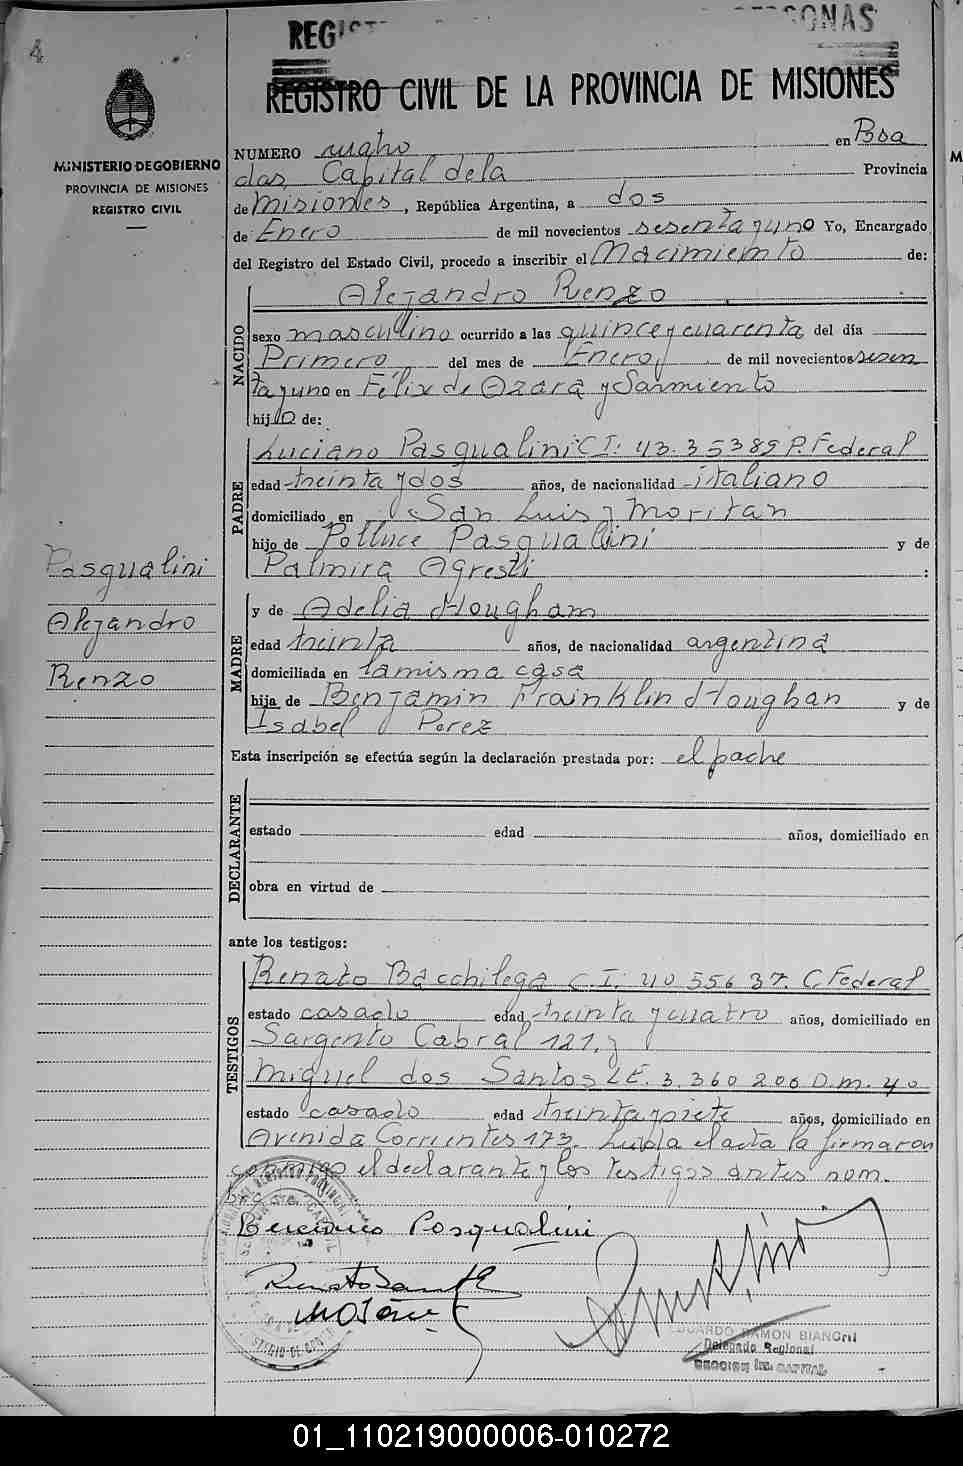 4
REGIST
PERSONAS
REGISTRO CIVIL DE LA PROVINCIA DE MISIONES
MINISTERIO DE GOBIERNO
PROVINCIA DE MISIONES
REGISTRO CIVIL
NUMERO cuatro en Posa
das, Capital de la Provincia
de Misiones, República Argentina, a dos
de Enero de mil novecientos sesenta y uno Yo, Encargado
del Registro del Estado Civil, procedo a inscribir el Nacimiento de:
NACIDO
Alejandro Renzo
sexo masculino ocurrido a las quince y cuarenta del día
Primero del mes de Enero, de mil novecientos sesen
ta y uno en Félix de Azara y Sarmiento
hijo de:
PADRE
Luciano Pasqualini CI: 43.35389 P. Federal
edad treinta y dos años, de nacionalidad italiano
domiciliado en San Luis y Moritan
hijo de Polluce Pasqualini y de
Palmira Agresti :
MADRE
y de Adelia Hougham
edad treinta años, de nacionalidad argentina
domiciliada en la misma casa
hija de Benjamin Frainklin Houghan y de
Isabel Perez
Pasqualini
Alejandro
Renzo
Esta inscripción se efectúa según la declaración prestada por: el padre
DECLARANTE
estado edad años, domiciliado en
obra en virtud de
ante los testigos:
TESTIGOS
Renato Bacchilega C.I. 40 556 37. C. Federal
estado casado edad treinta y cuatro años, domiciliado en
Sargento Cabral 121. y
Miguel dos Santos LE. 3.360 206 D.M. 40
estado casado edad treinta y siete años, domiciliado en
Avenida Corrientes 173. Leida el acta la firmaron
conmigo el declarante y los testigos antes nom.
brado
Luciano Pasqualini
EDUARDO RAMON BIANCHI
Delegado Regional
SECCION 1ra. CAPITAL
01_110219000006-010272